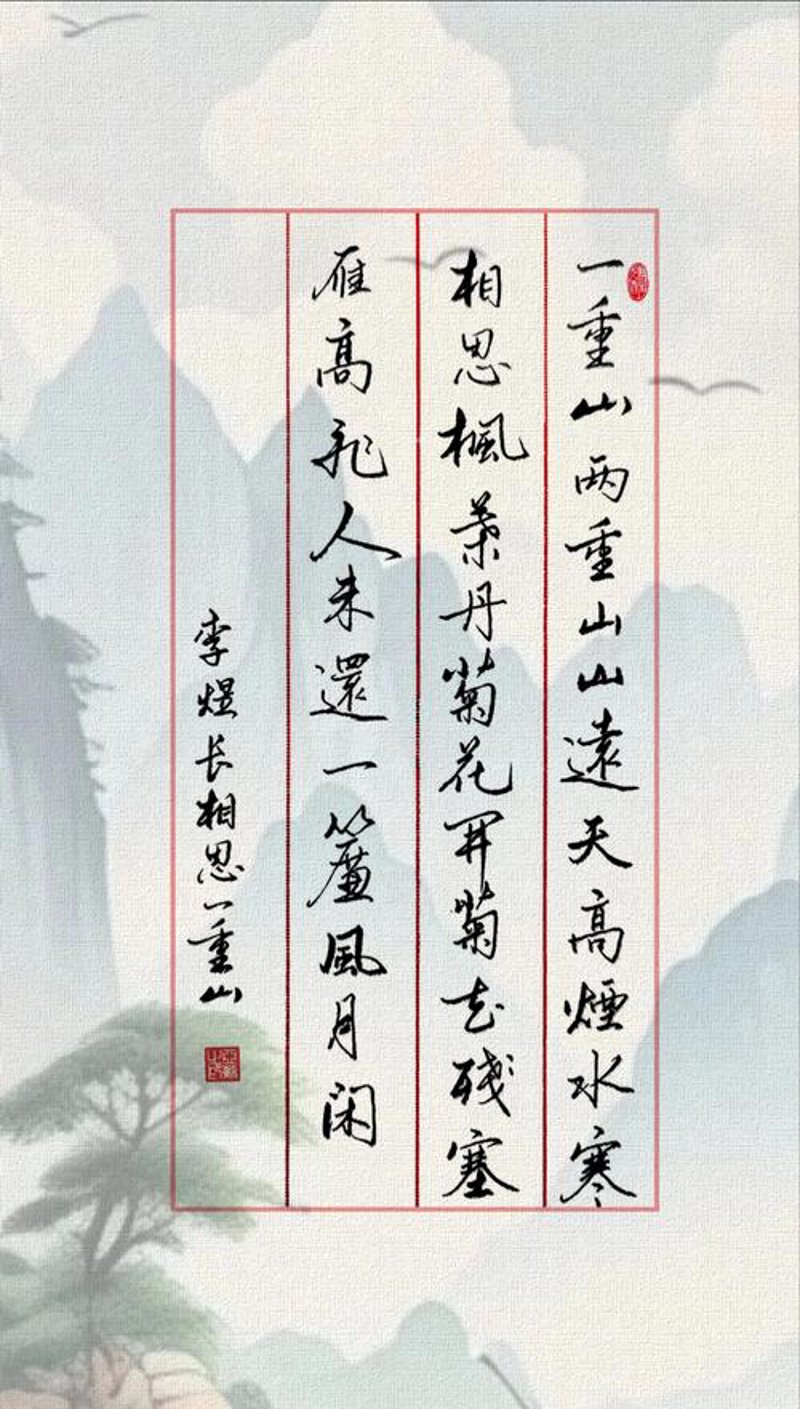 一重山两重山山遠天高煙水寒
相思楓葉丹菊花開菊花殘塞
雁高飛人未還一簾風月閑
李煜长相思一重山